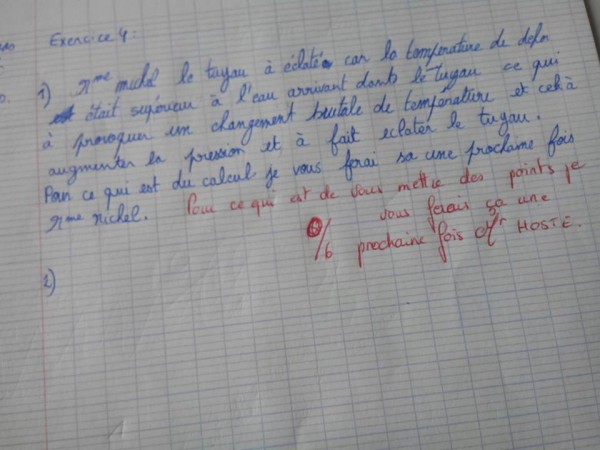 Exercice 4:
1) Mme michel le tuyau à éclaté car la température de
était supérieur à l'eau arrivant dants le tuyau ce qui
à provoquer un changement brutale de température et celà
augmenter la pression et à fait eclater le tuyau.
Pour ce qui est du calcul je vous ferai sa une prochaine fois
Mme Michel. Pour ce qui est de vous mettre des points je
vous ferais sa une
0/6 prochaine fois Mr HOSTE.
2)